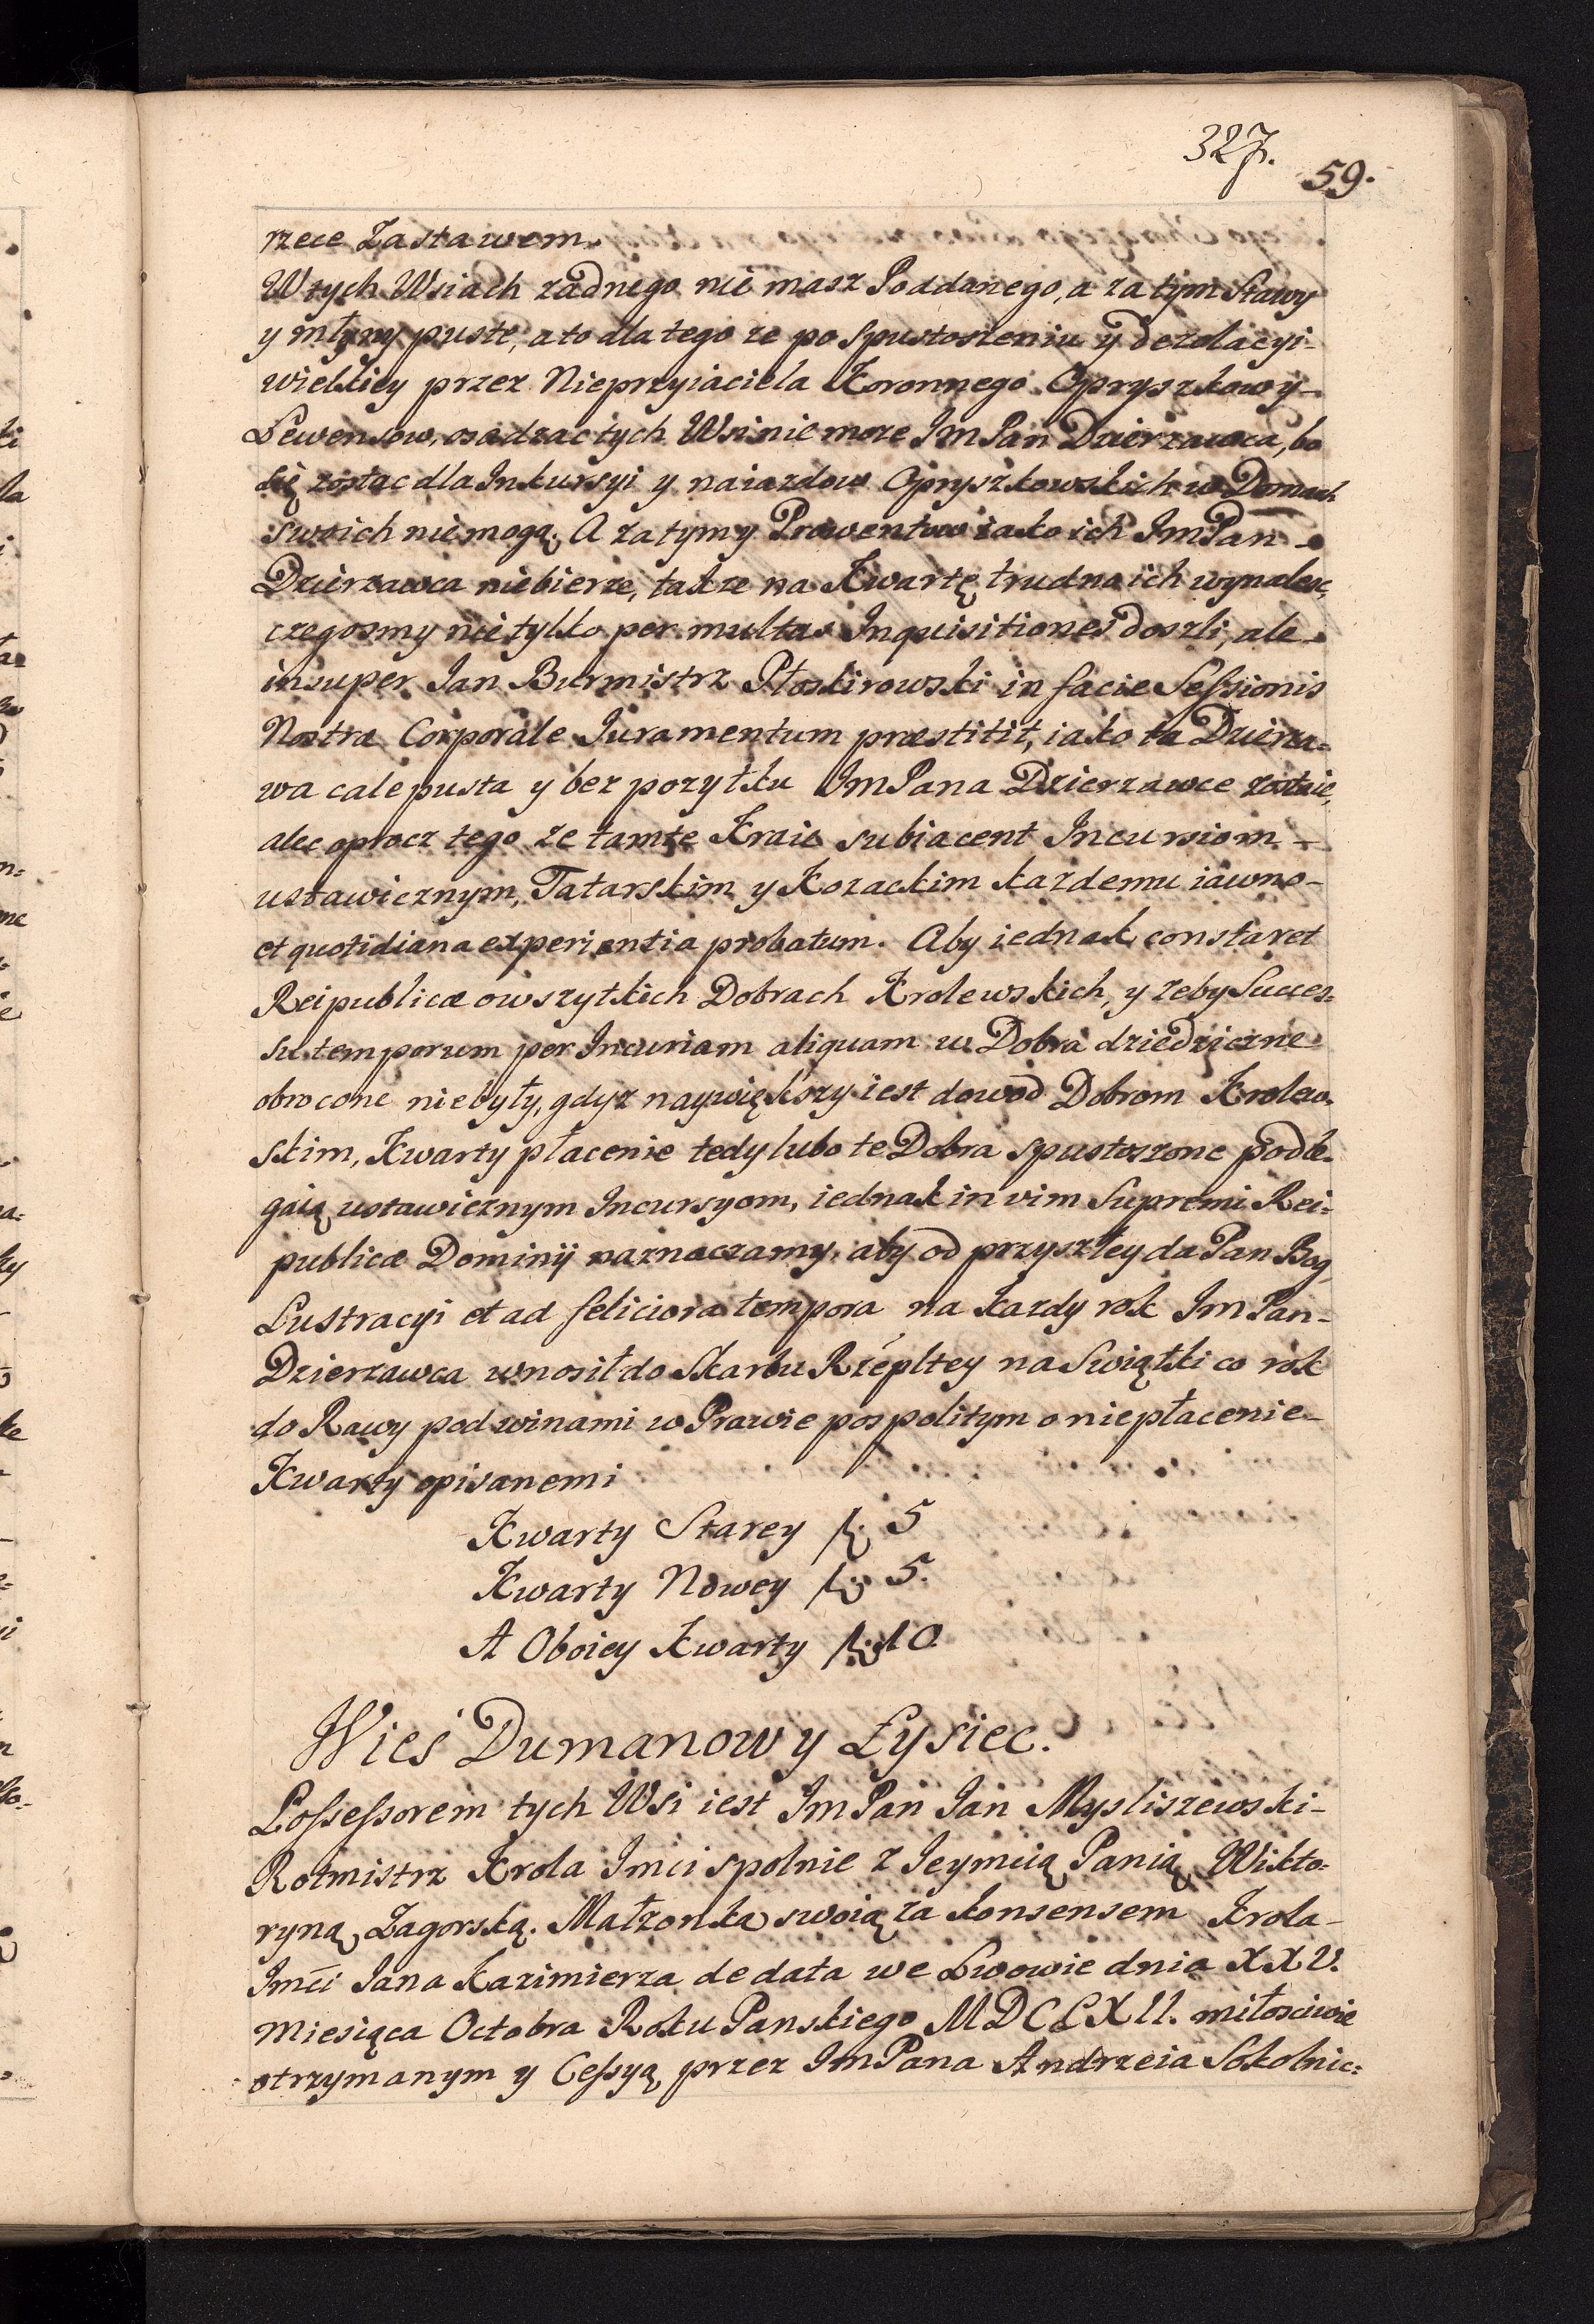 327.
59.
rzece Zastawem.
W tych Wsiach zadnego nie masz Poddanego, a za tym Stawy
y młyny puste, a to dla tego ze po Spustoszeniu y dezolacyi-
wielkiey przez Nieprzyiaciela Koronnego Opryszkowy-
Lewensow, osadzac tych Wsi nie moze Im Pan Dzierzawca, bo
się zostac dla Inkursyi y naiazdow Opryszkowskich w Domach
swoich nie mogą. A za tym y Prowentow iako ich Im Pan-
Dzierzawca niebierze, takze na Kwartę trudno ich wynalesc,
czegosmy nie tylko per multas Inquisitiones doszli, ale-
insuper Jan Burmistrz Płoskirowski in facie Sessionis
Nostræ Corporale Juramentum præstitit, iako ta Dzierza=
wa cale pusta y bez pozytku Im Pana Dzierzawce zostaie,
alec oprocz tego ze tamte Kraie subiacent Incursiom-
ustawicznym, Tatarskim y Kozackim kazdemu iawno-
et quotidiana experientia probatum. Aby iednak constaret
Reipublicæ o wszytkich Dobrach Krolewskich, y zeby Succes=
su temporum per Incuriam aliquam w Dobra dziedziczne-
obrocone niebyły, gdyz naywiększy iest dowod Dobrom Krolew=
skim, Kwarty płacenie tedy lubo te Dobra spustoszone podle=
gaią ustawicznym Incursyom, iednak in vim Supremi Rei=
publicæ Dominij naznaczamy, aby od przyszłey da Pan Bog
Lustracyi et ad feliciora tempora na kazdy rok Im Pan-
Dzierzawca wnosił do Skarbu Rzépltey na Swiątki co rok
do Rawy pod winami w Prawie pospolitym o niepłacenie-
Kwarty opisanemi
Kwarty Starey f. 5
Kwarty Nowey f. 5.
A Oboiey Kwarty f. 10
Wieś Dumanow y Łysiec.
Possessorem tych Wsi iest Im Pan Jan Mysliszewski-
Rotmistrz Krola Imci spolnie z Jeymcią Panią Wikto=
ryną Zagorską. Małzonką swoią za konsensem Krola-
Imci Jana Kazimierza de data we Lwowie dnia XXV.
Miesiąca Octobra Roku Panskiego MDCLXII. miłosciwie
otrzymanym y Cessyą przez Im Pana Andrzeia Sokolnic=